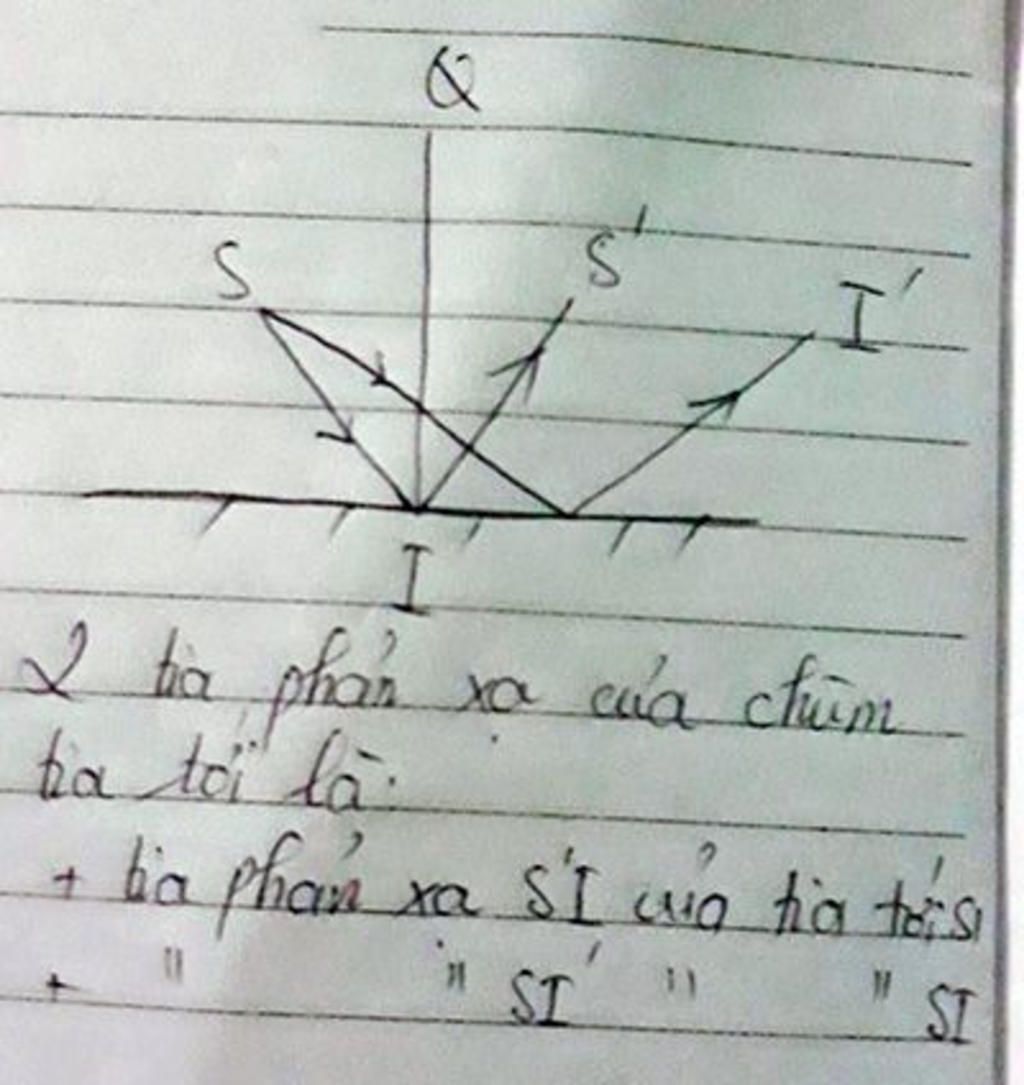 Q
S
S'
I'
I
2 tia phản xạ của chùm
tia tới là:
+ tia phản xạ S'I của tia tới SI
+ " " SI' " " SI